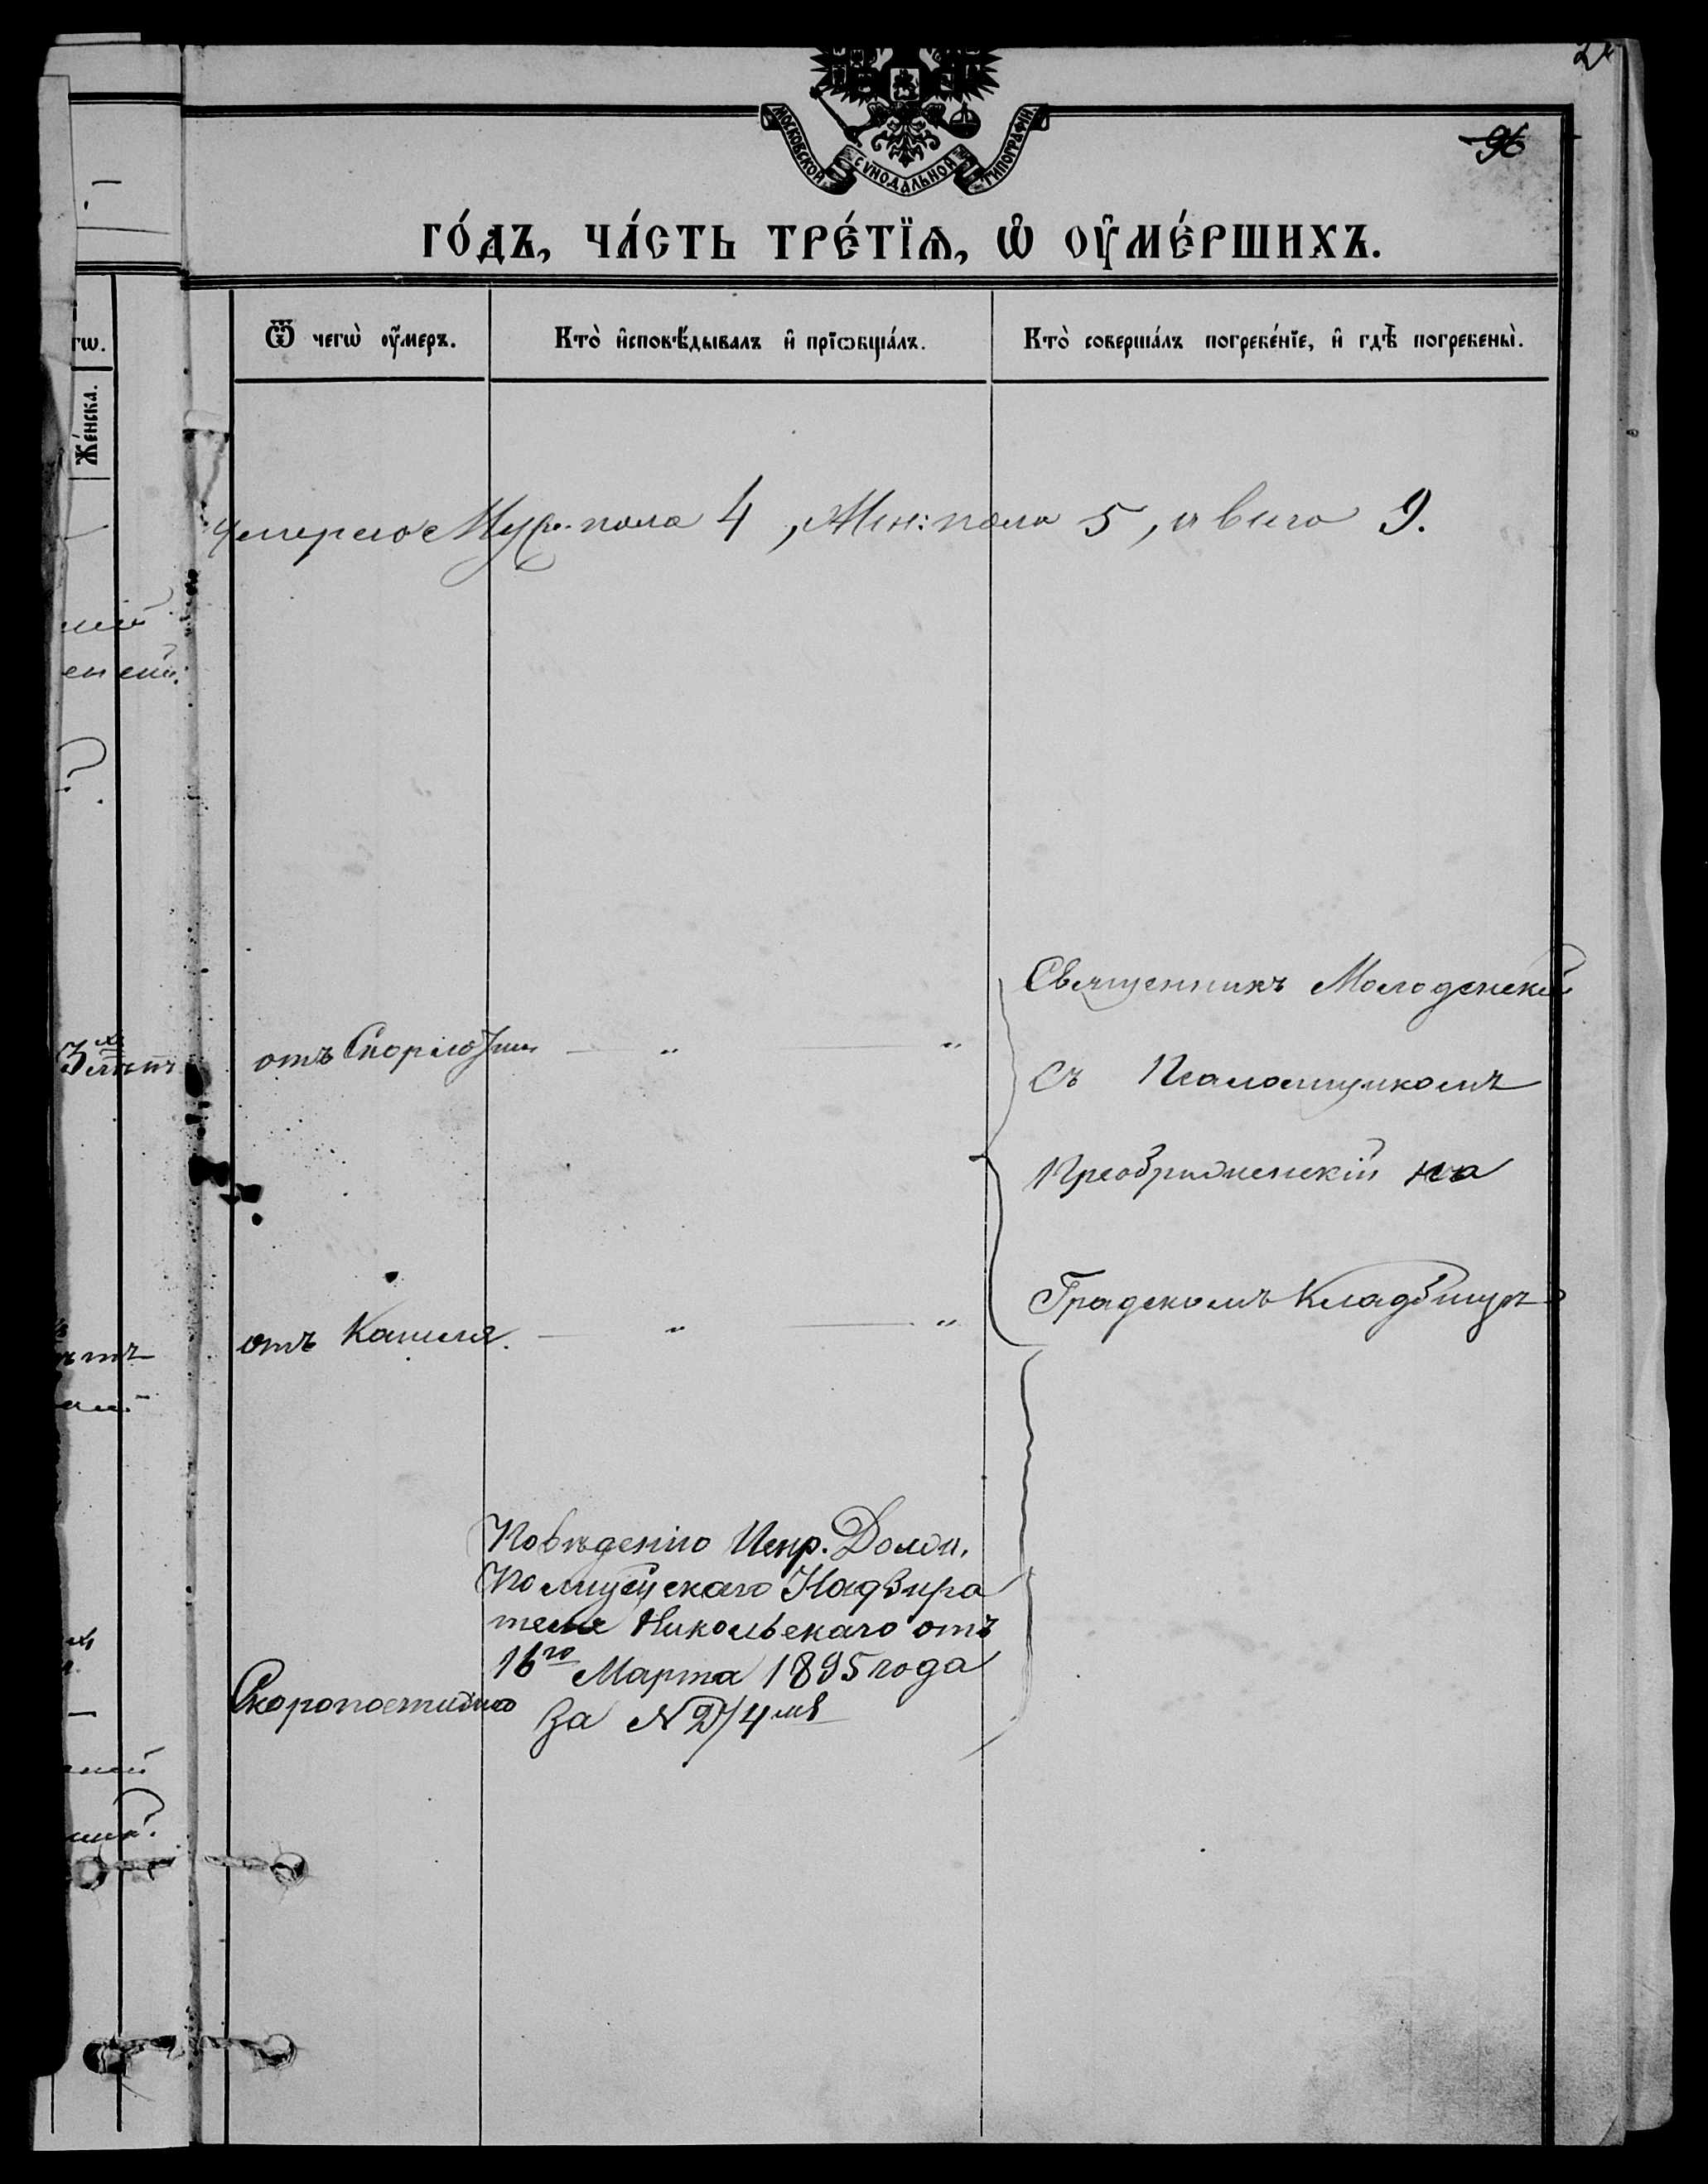 96
МОСКОВСКОЙ СѴНОДАЛЬНОЙ ТИПОГРАФІИ
ГО́ДЪ, ЧА́СТЬ ТРЕ́ТЇѦ, Ѡ҆ ОУ҆МЕ́РШИХЪ.
Ѿ чегѡ̀ оу҆́меръ.
Кто̀ и҆сповѣ́дывалъ и҆ прїѡбща́лъ.
Кто̀ соверша́лъ погребе́нїе, и҆ гдѣ̀ погребены̀.
гѡ.
Же́нска.
Умерло Муж. пола 4, Жен: пола 5, а всего 9.
3х лѣтъ
отъ Скорлотины — " — "
Священникъ Молоденскій
Съ Псаломщикомъ
Преображенскій на
Градскомъ Кладбищѣ
отъ Кашля. — " — "
Скоропостижно
По вѣденію Испр. Долж.
Полицейскаго Надзира
теля Никольскаго отъ
16го Марта 1895 года
За №